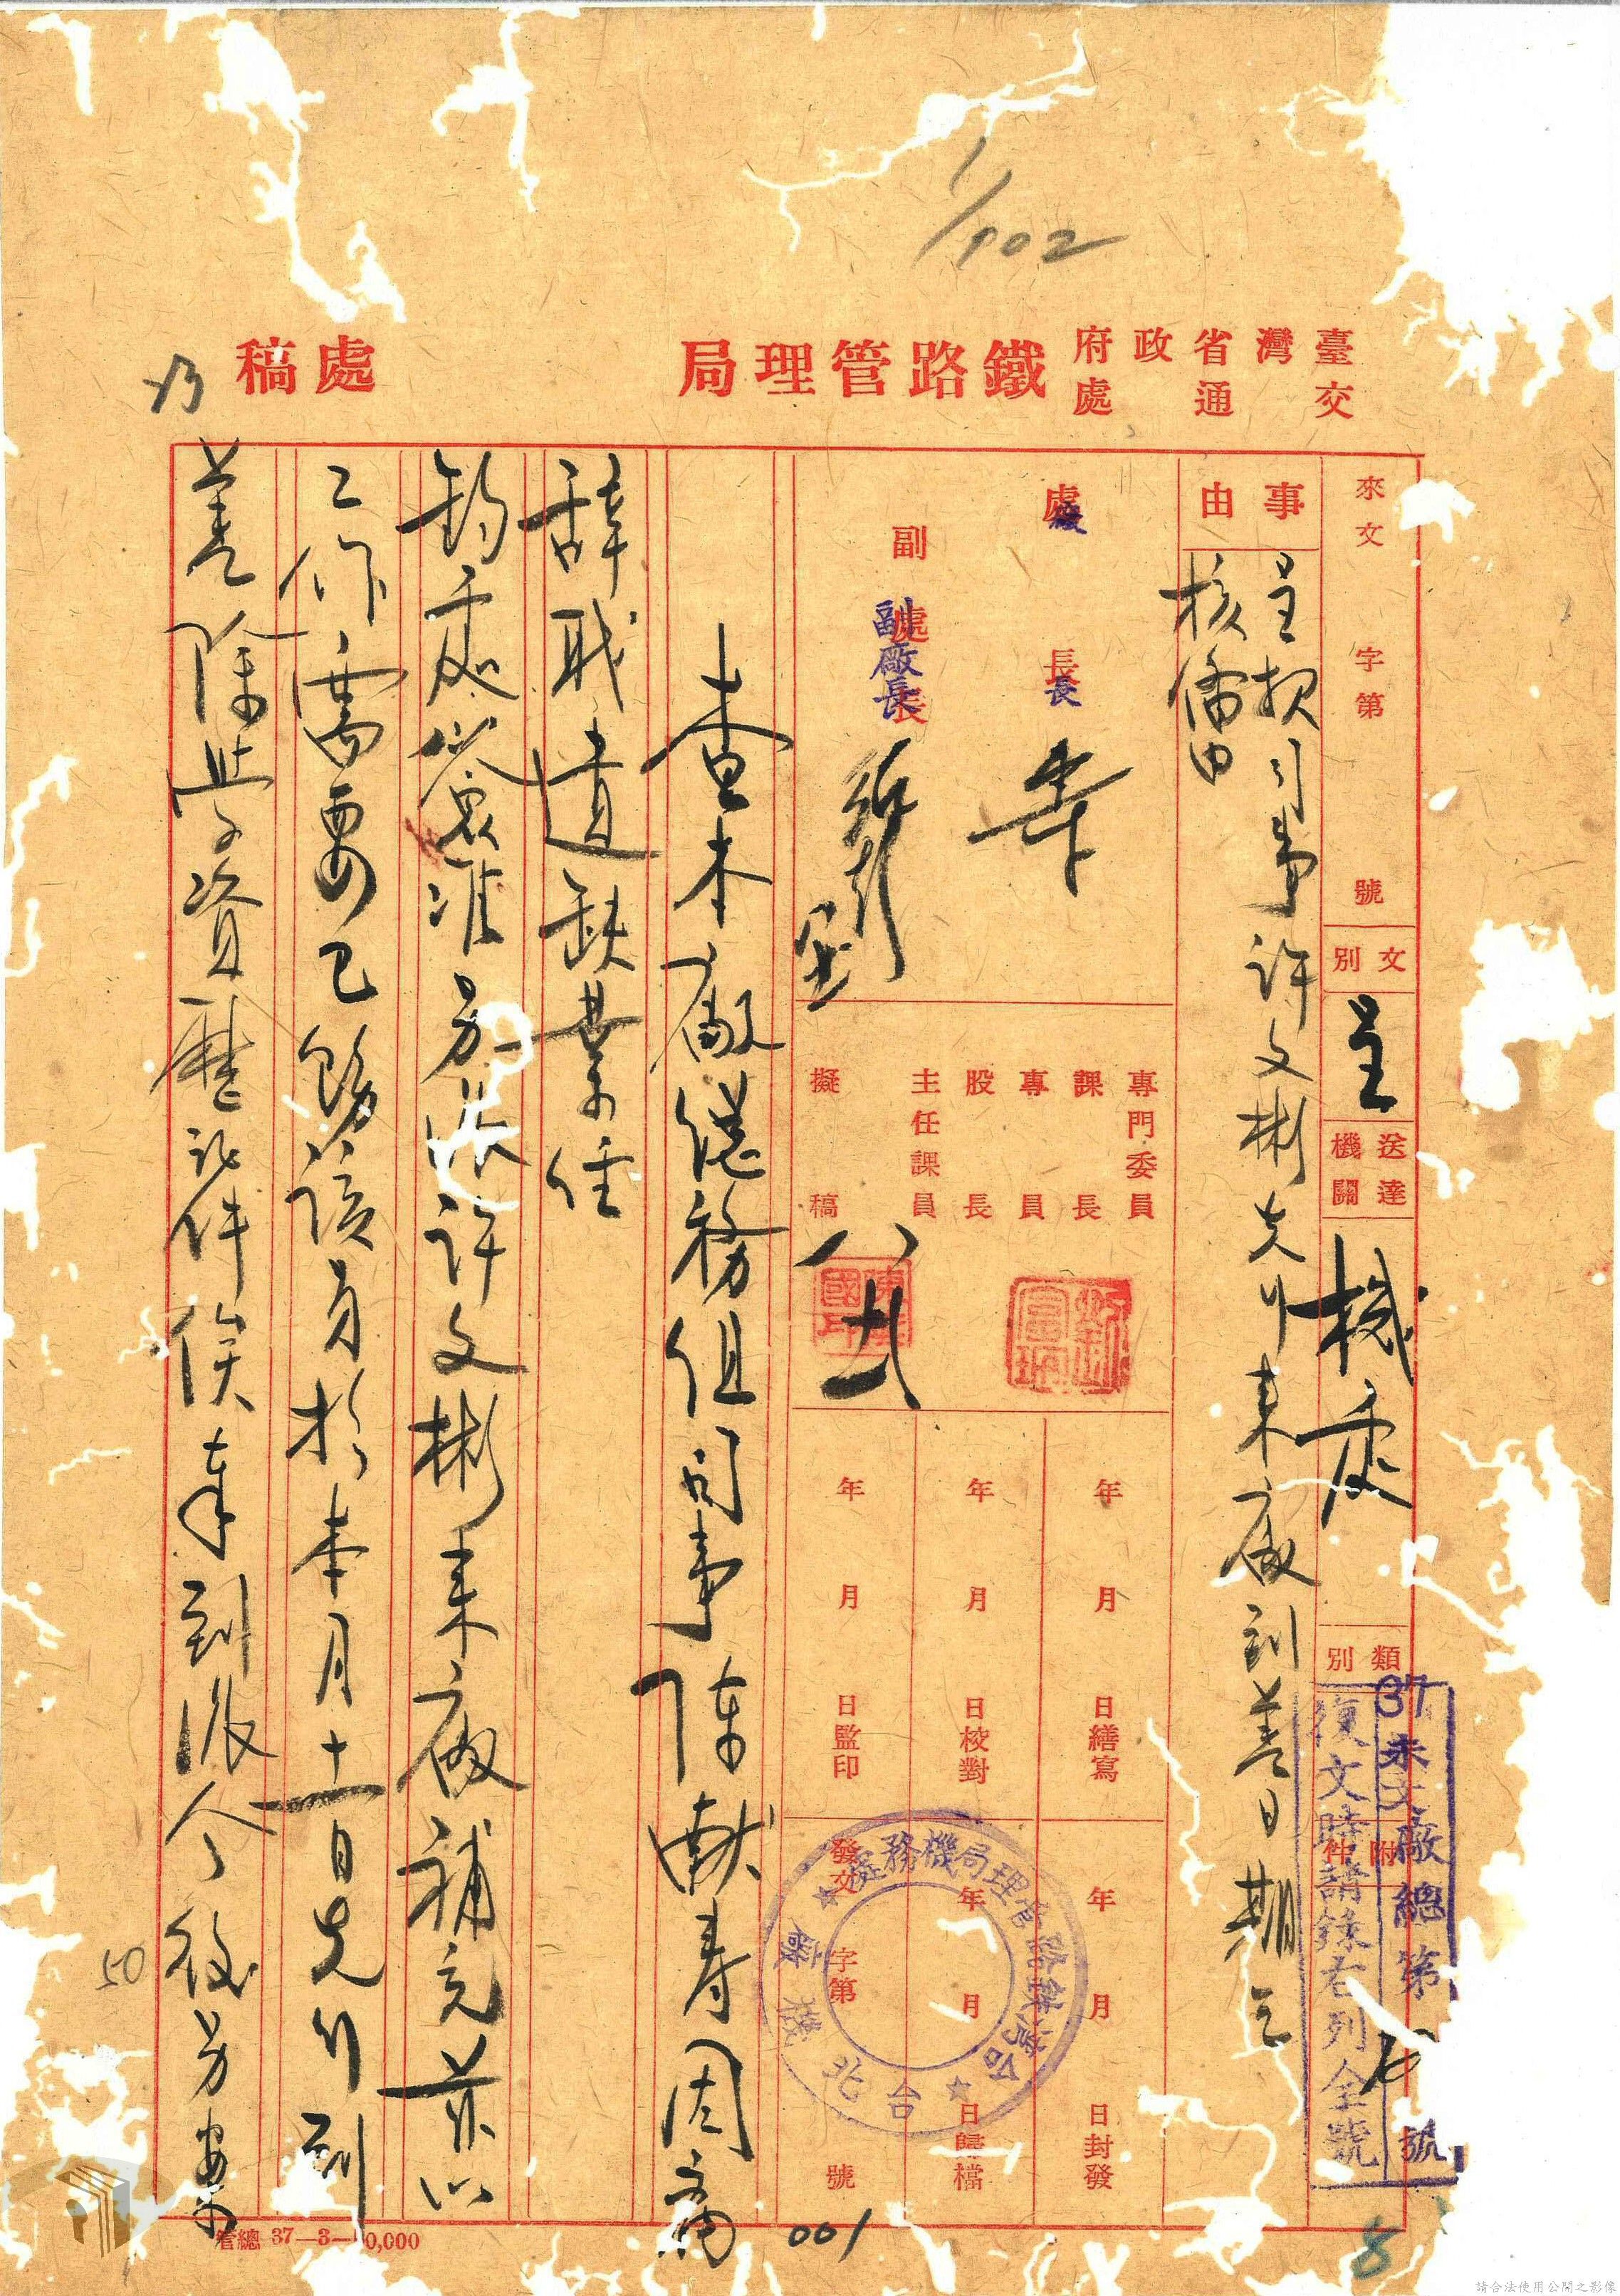 1/702
臺灣省政府
交通處
鐵路管理局
處稿
來文 字第 號
文別
呈
送達機關
機處
類別
附件
37未文廠總第 號
復文時請錄右列全號
事由
呈報司事許文彬先行來廠到差日期乞
核備由
處長
廠長
副處長
副廠長
專門委員
課長
專員
股長
主任課員
擬稿
八 廿
年 月 日繕寫
年 月 日校對
年 月 日監印
年 月 日封發
年 月 日歸檔
發文 字第 號
台灣鐵路管理局機務處
台北機廠
查本廠總務組司事陳獻壽因病
辭職遺缺業予
鈞處簽准另派許文彬來廠補充茲以
工作需要已飭該員於本月十一日先行到
差除學資歷証件俟奉到派令後另案
管總 37—3—0,000
001
50
8
請合法使用公開之影像